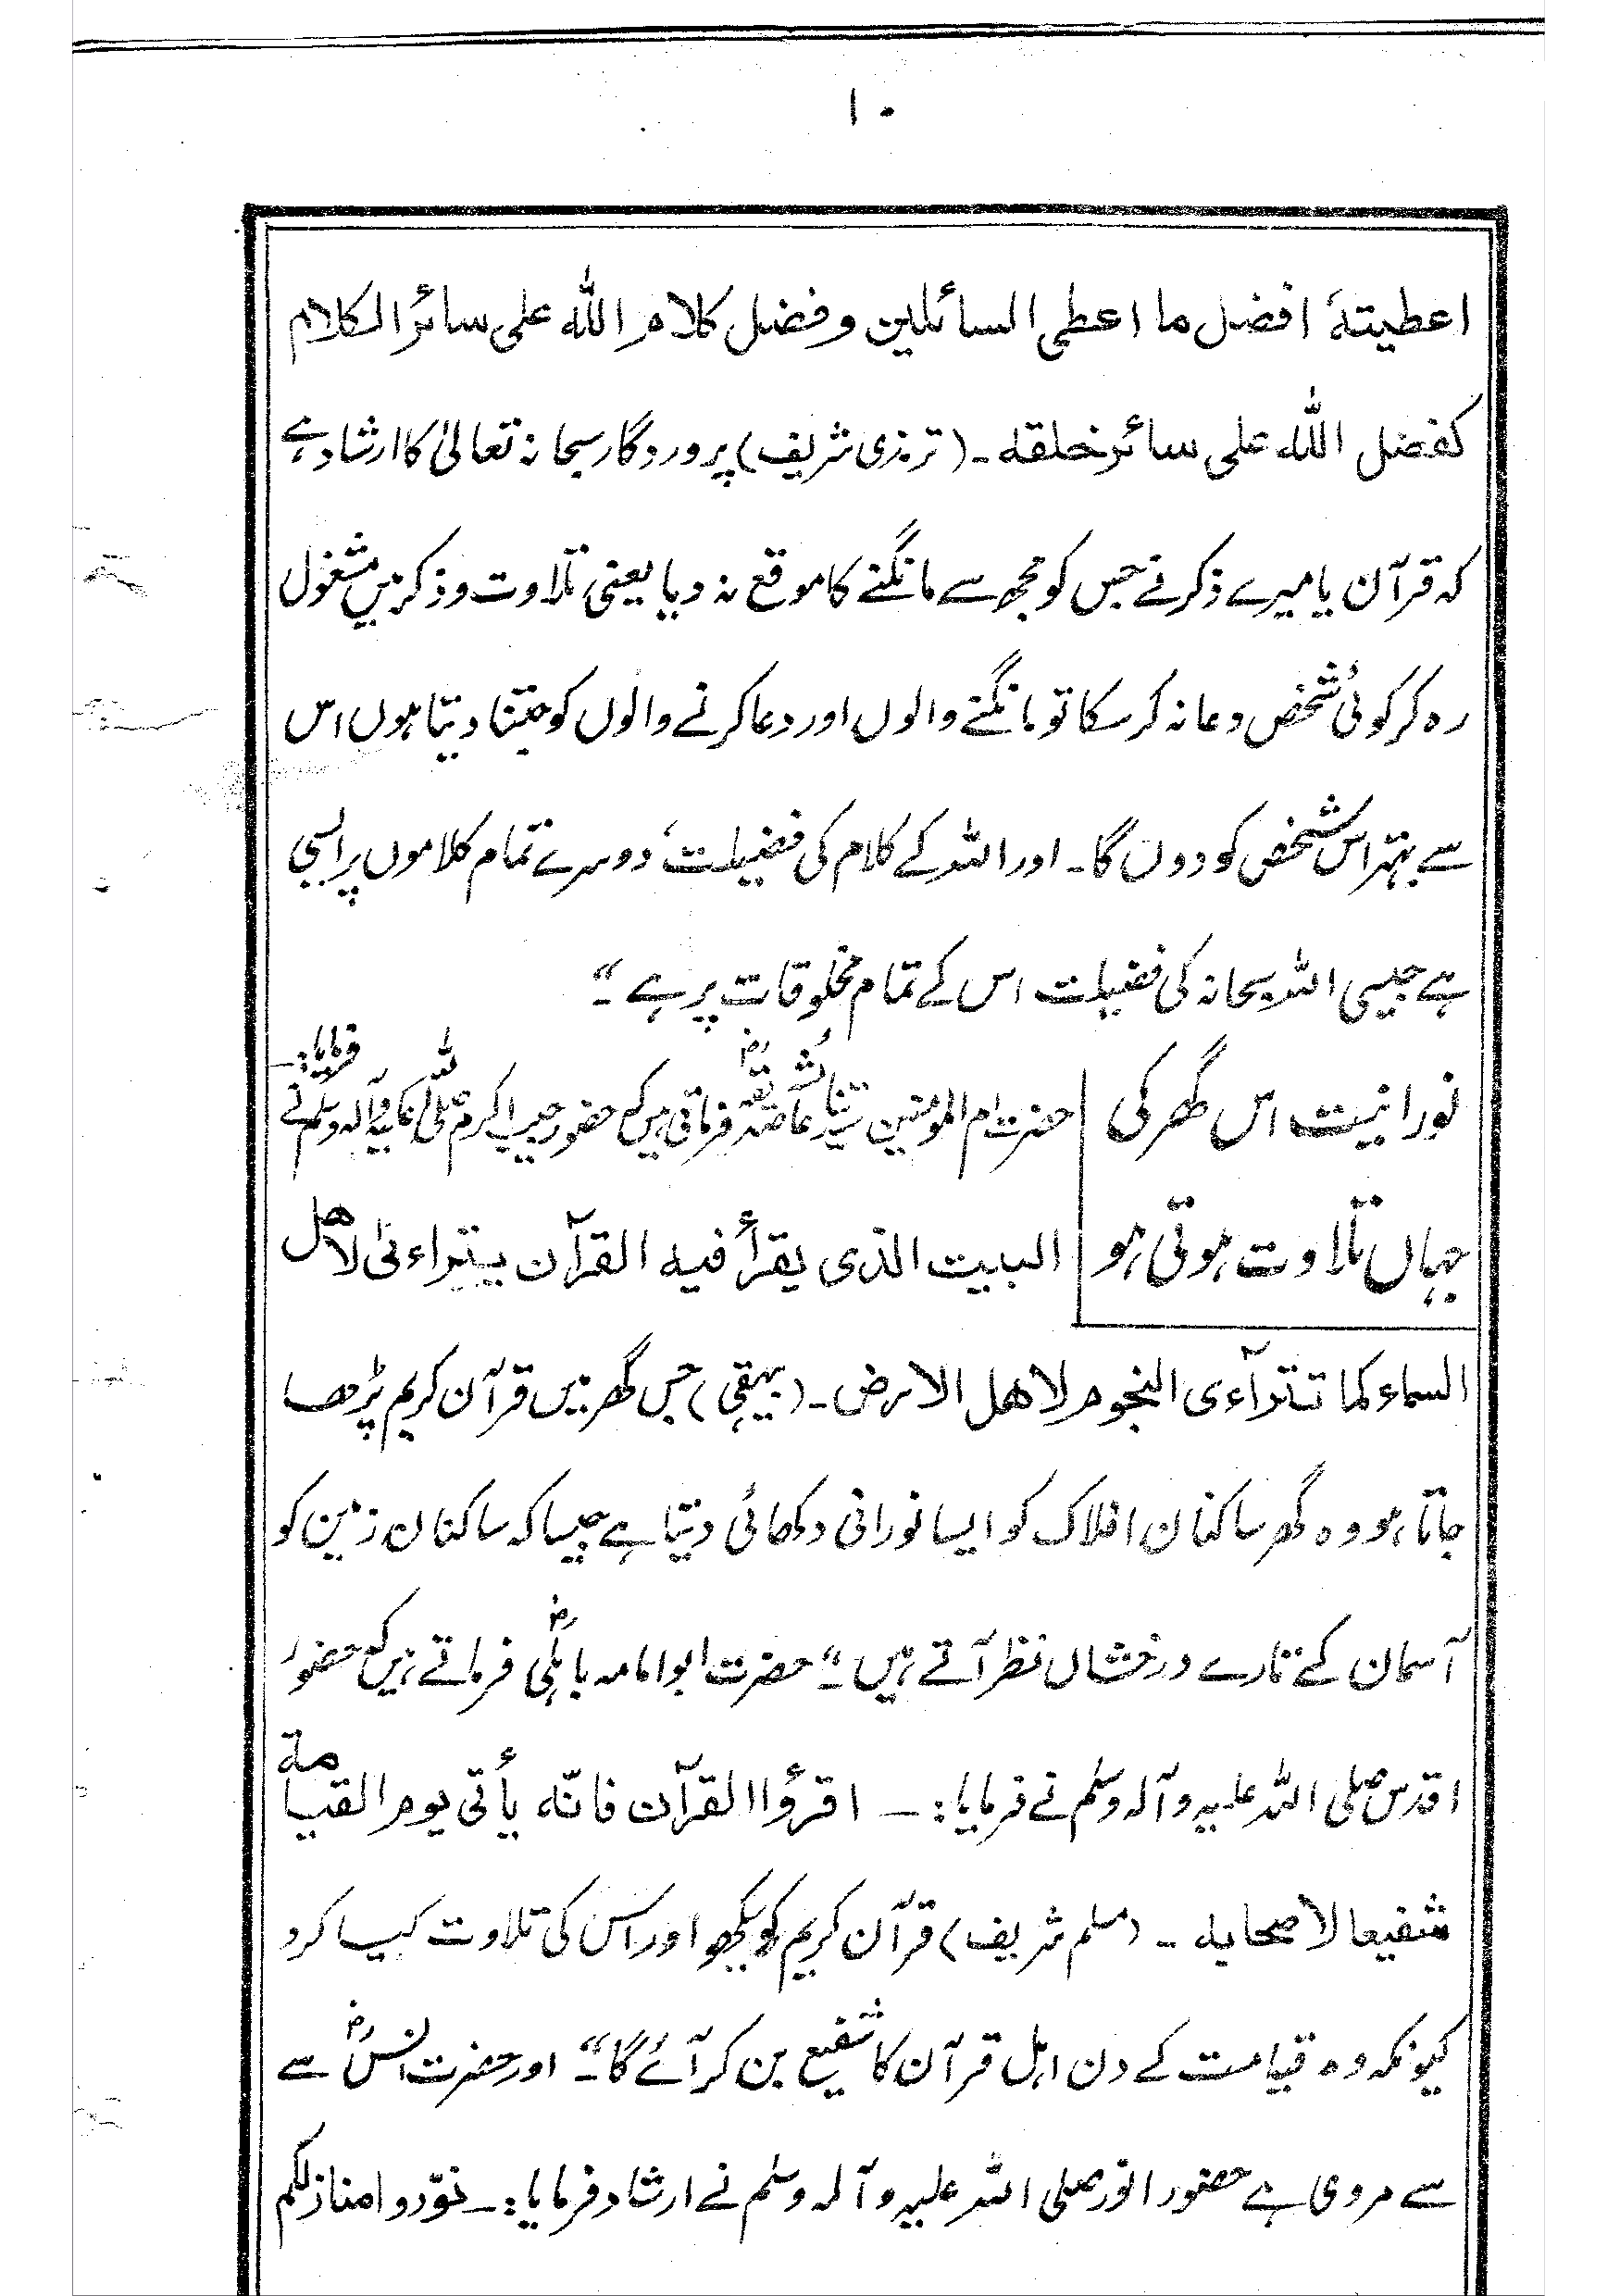 ۱۰
اعطیتہٗ افضل ما اعطی السائلین و فضل کلام اللہ علی سائر الکلام
کفضل اللہ علی سائر خلقہ ۔ (ترمذی شریف) پروردگار سبحانہ تعالیٰ کا ارشاد ہے
کہ قرآن یا میرے ذکر نے جس کو مجھ سے مانگنے کا موقع نہ دیا یعنی تلاوت و ذکر میں مشغول
رہ کر کوئی شخص دعا نہ کر سکا تو مانگنے والوں اور دعا کرنے والوں کو جتنا دیتا ہوں اس
سے بہتر اس شخص کو دوں گا ۔ اور اللہ کے کلام کی فضیلت، دوسرے تمام کلاموں پر ایسی
ہے جیسی اللہ سبحانہ کی فضیلت اس کے تمام مخلوقات پر ہے ۔“
نورانیت اس گھر کی
جہاں تلاوت ہوتی ہو
حضرت ام المؤمنین سیدتنا عائشہ صدیقہؓ فرماتی ہیں کہ حضور حبیب اکرم صلی اللہ علیہ وآلہ وسلم نے فرمایا :۔
البیت الذی یقرأ فیہ القرآن یتراءیٰ لاھل
السماء کما تترآءی النجوم لاھل الارض ۔ (بیہقی) جس گھر میں قرآن کریم پڑھا
جاتا ہو وہ گھر ساکنان افلاک کو ایسا نورانی دکھائی دیتا ہے جیسا کہ ساکنان زمین کو
آسمان کے تارے درخشاں نظر آتے ہیں ۔“ حضرت ابوامامہ باہلیؓ فرماتے ہیں کہ حضور
اقدس صلی اللہ علیہ وآلہ وسلم نے فرمایا :۔ اقرؤا القرآن فانّہ یأتی یوم القیامة
شفیعا لاصحابہ ۔ (مسلم شریف) قرآن کریم کو سیکھو اور اس کی تلاوت کیا کرو
کیونکہ وہ قیامت کے دن اہل قرآن کا شفیع بن کر آئے گا ۔“ اور حضرت انسؓ سے
سے مروی ہے حضور انور صلی اللہ علیہ وآلہ وسلم نے ارشاد فرمایا :۔ نوّروا منازلکم